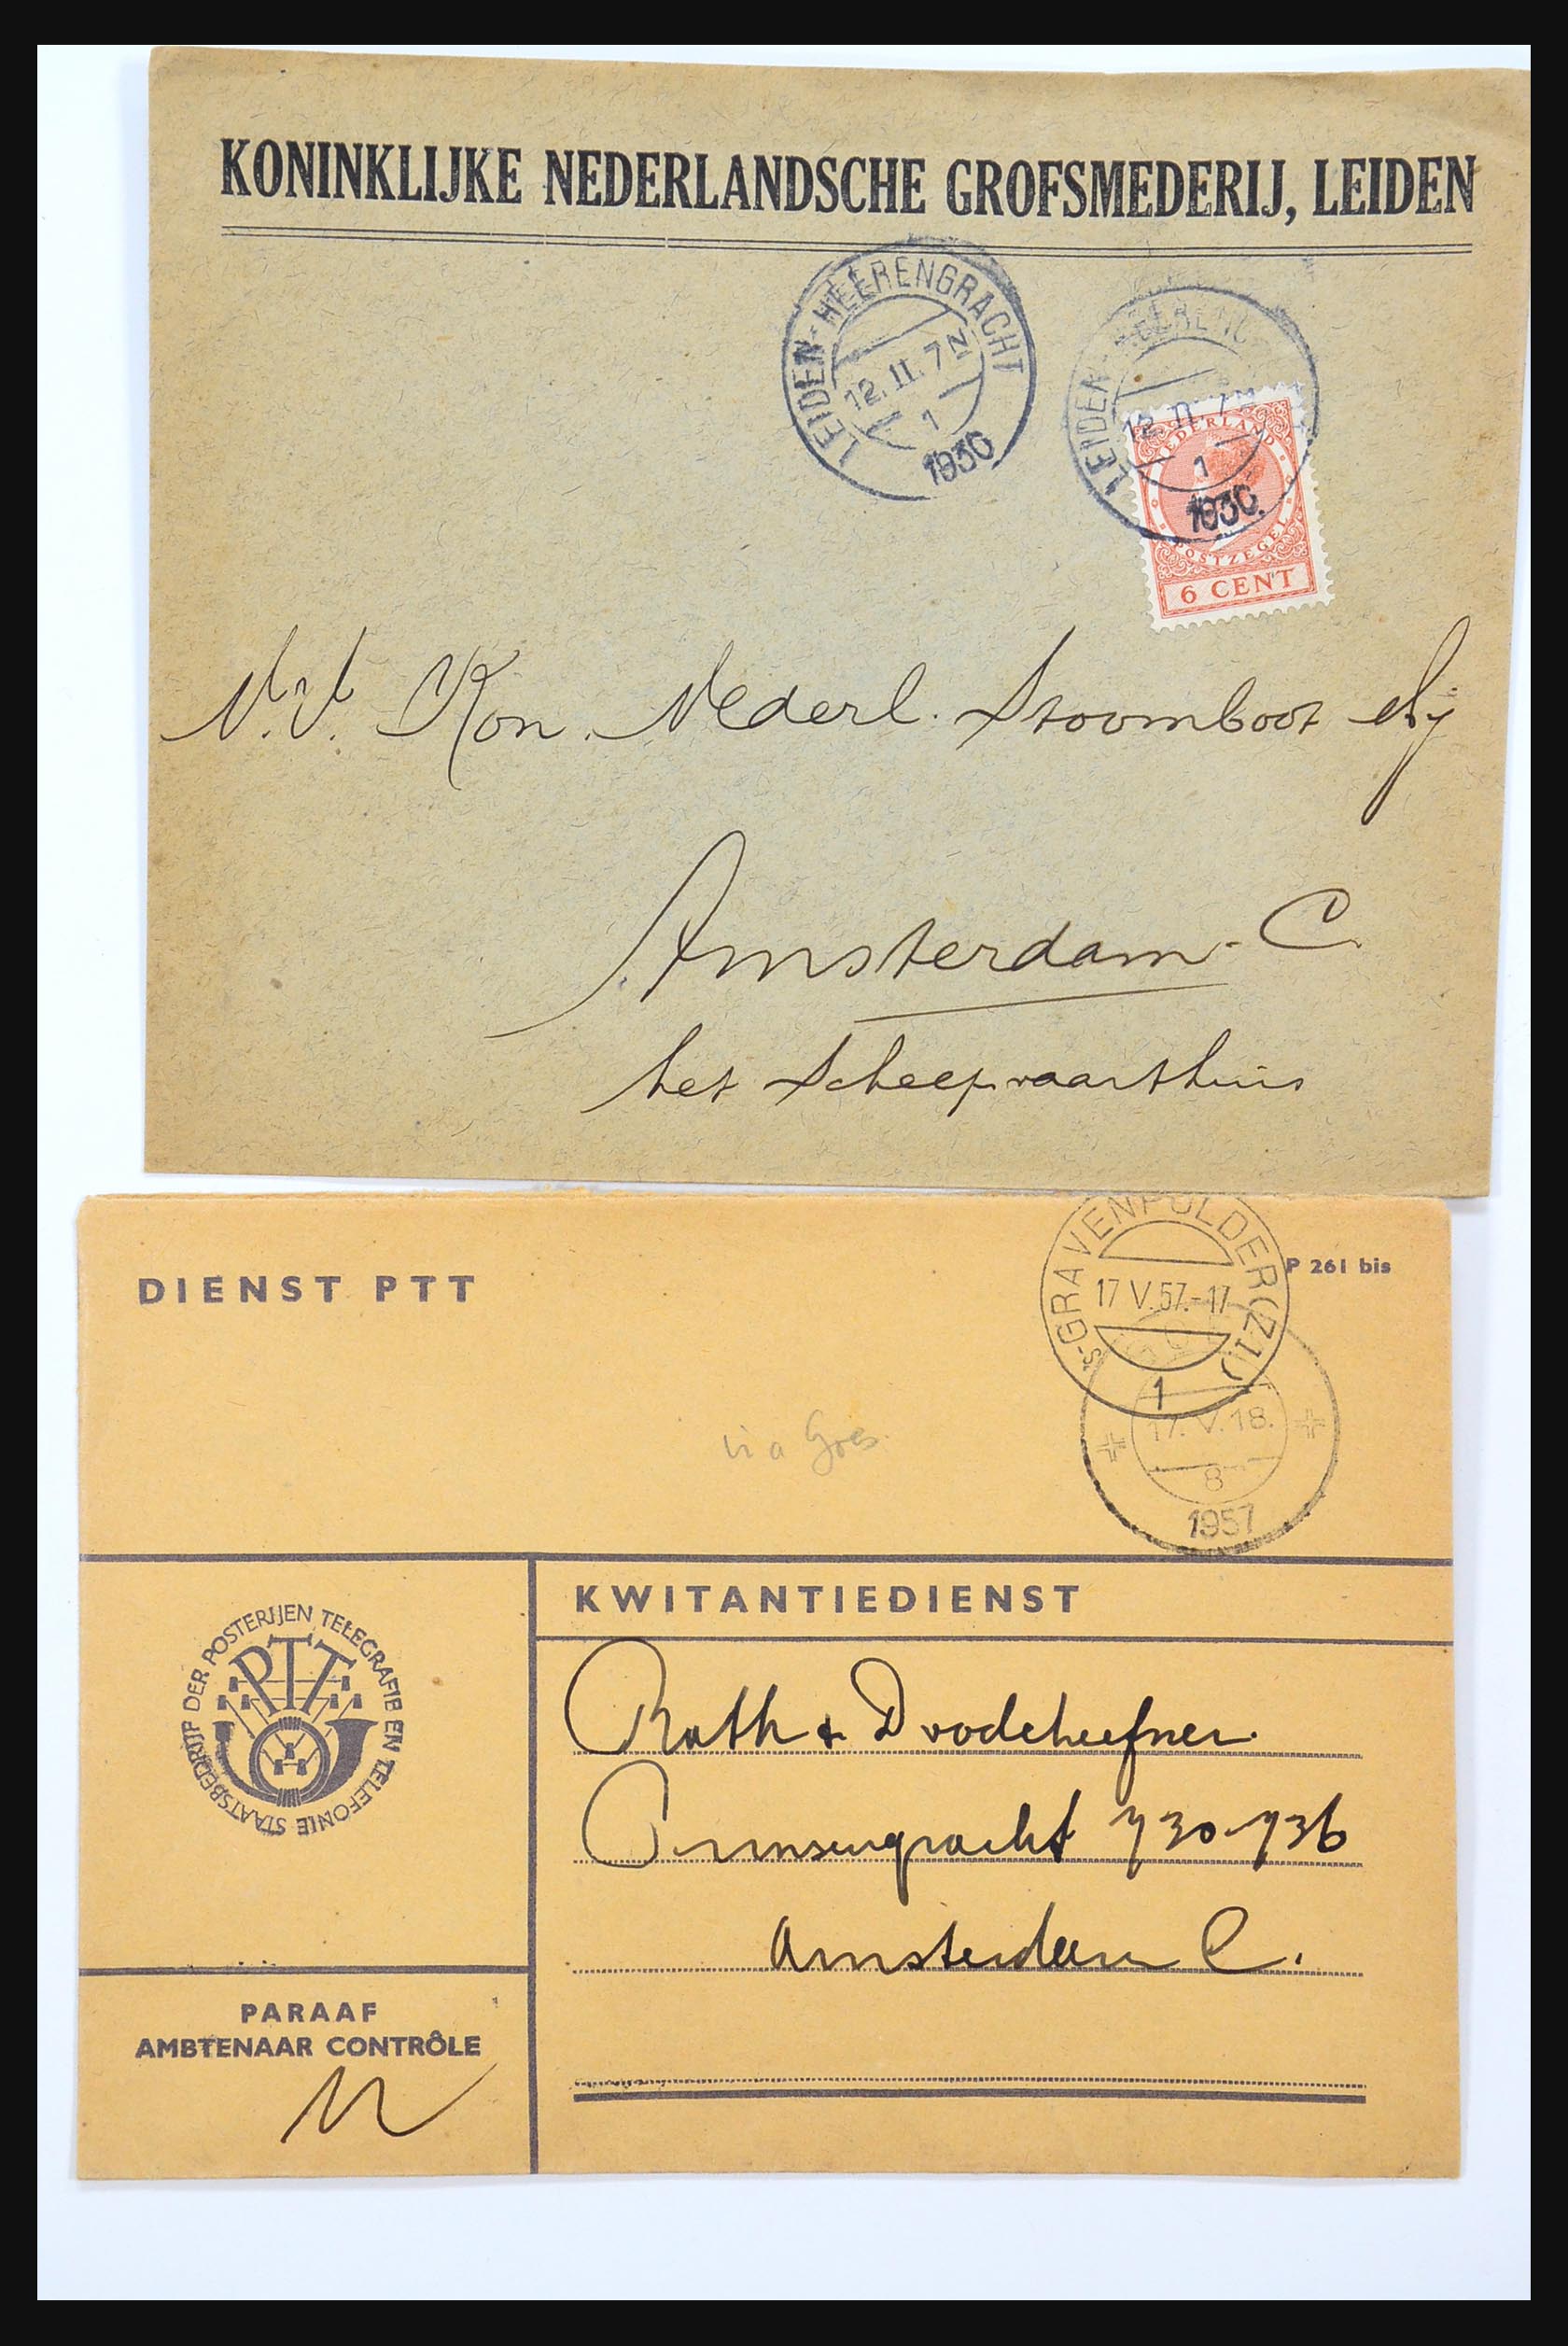 KONINKLIJKE NEDERLANDSCHE GROFSMEDERIJ, LEIDEN
LEIDEN-HEERENGRACHT
12.II.7N
1
1930
LEIDEN-HEERENG
12.II.7N
1
1930
NEDERLAND
POSTZEGEL
6 CENT
N.V. Kon. Nederl. Stoomboot Mij
Amsterdam-C.
het Scheepvaarthuis
DIENST PTT
P 261 bis
's-GRAVENPOLDER (Z1)
17 V.57.-17
1
17.V.18.
8
1957
via Goes.
KWITANTIEDIENST
STAATSBEDRIJF DER POSTERIJEN TELEGRAFIE EN TELEFONIE
PTT
Rath &
Prinsengracht 730-736
Amsterdam C.
PARAAF
AMBTENAAR CONTRÔLE